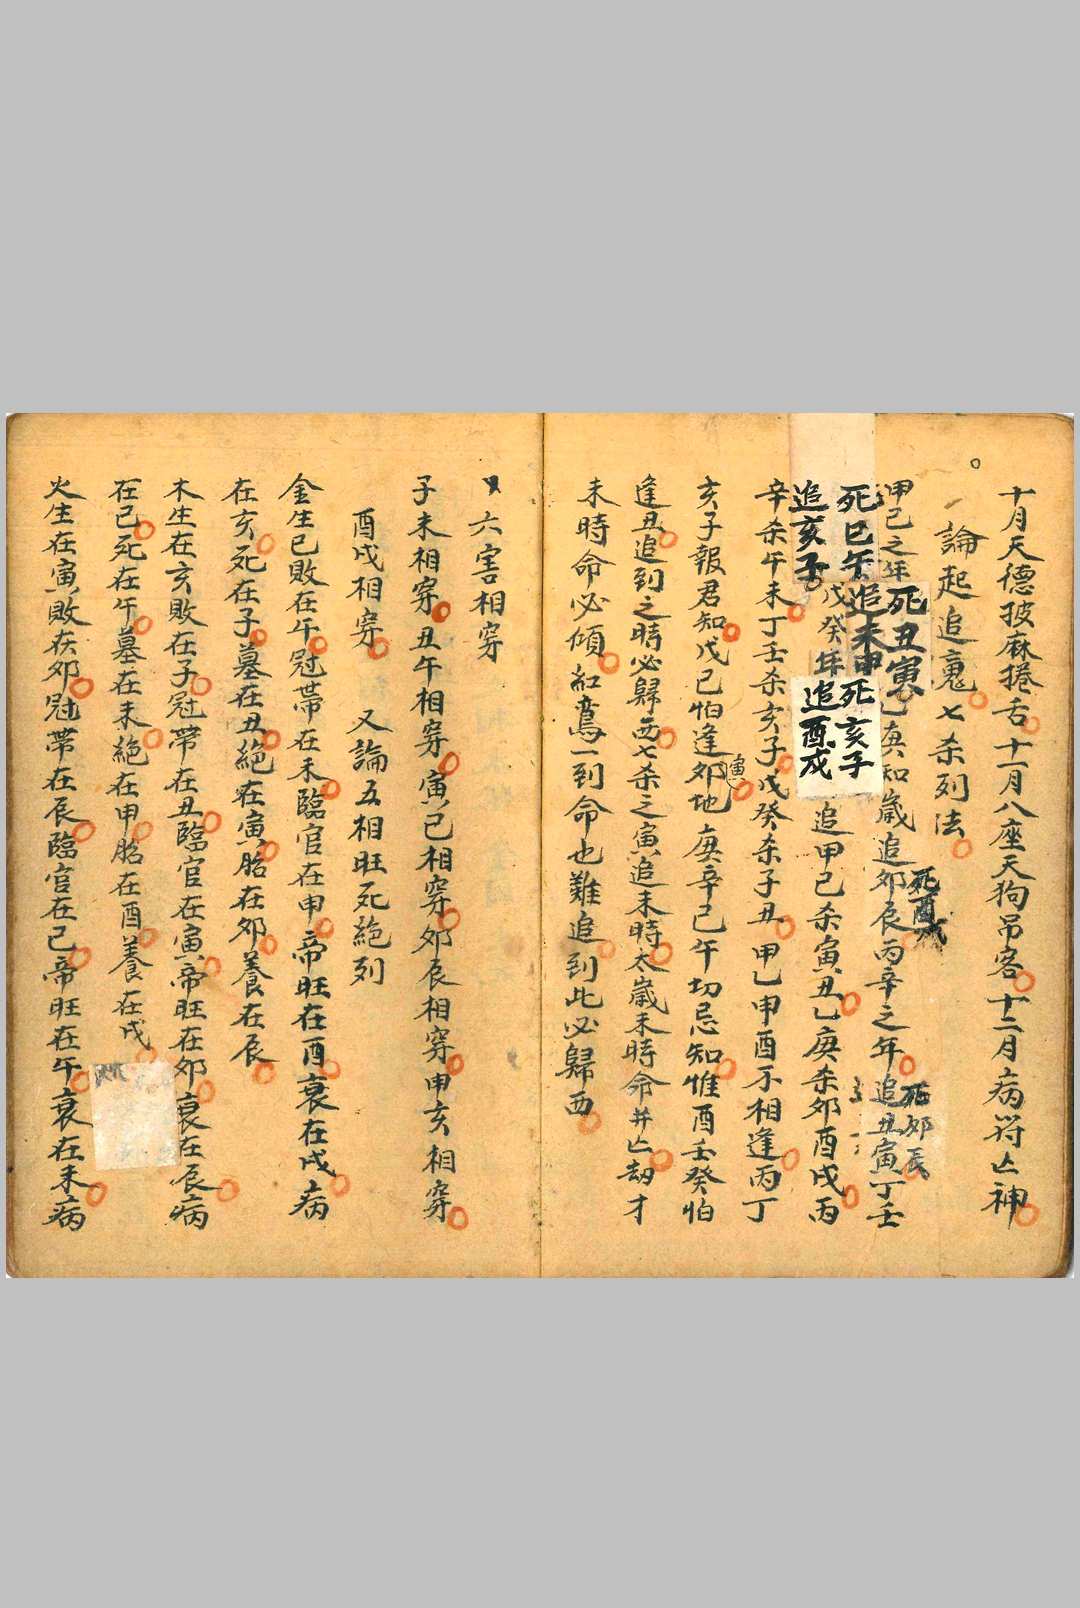 十月天德披麻捲舌十一月八座天狗吊客十二月病符亡神
論起追魂七杀列法
甲己之年死丑寅乙庚知歲追夘辰丙辛之年追丑寅丁壬
死酉戌
死夘辰
死巳午追未申死亥子
追亥子戊癸年追酉戌
追甲己杀寅丑乙庚杀夘酉戌丙
辛杀午未丁壬杀亥子戊癸杀子丑甲乙申酉不相逢丙丁
亥子報君知戊己怕逢夘地庚辛巳午切忌知惟酉壬癸怕
寅
逢丑追到之時必歸西七杀之寅追未時太歲未時命并亡劫才
未時命必傾紅鸞一到命也難追到此必歸西
六害相穿
子未相穿丑午相穿寅巳相穿夘辰相穿申亥相穿
酉戌相穿 又論五相旺死絕列
金生巳敗在午冠帶在未臨官在申帝旺在酉衰在戌病
在亥死在子墓在丑絕在寅胎在夘養在辰
木生在亥敗在子冠帶在丑臨官在寅帝旺在夘衰在辰病
在巳死在午墓在未絕在申胎在酉養在戌
火生在寅敗在夘冠帶在辰臨官在巳帝旺在午衰在未病